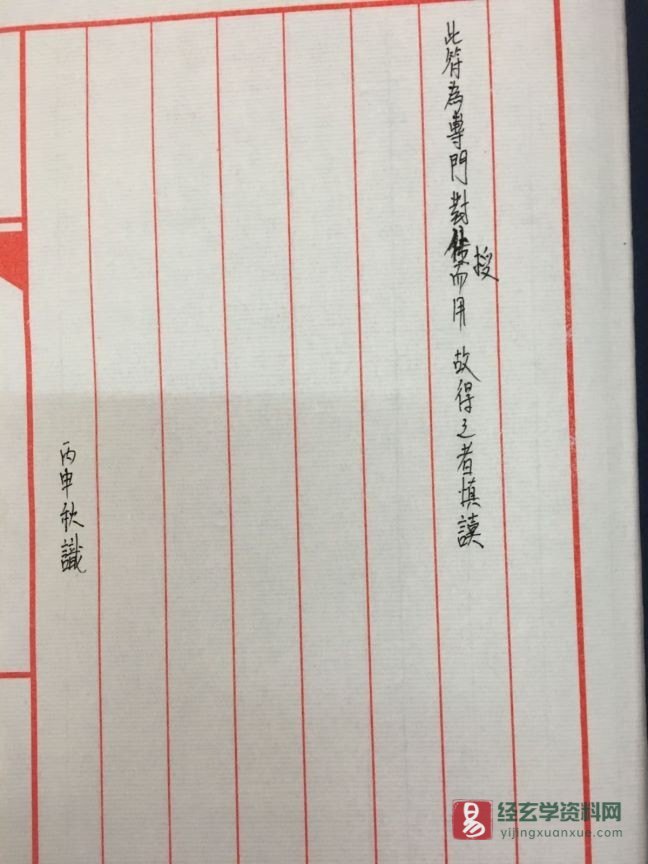 此符為專門對授而用 故得之者慎讀
丙申秋識
易 经玄学资料网
yijingxuanxue.com